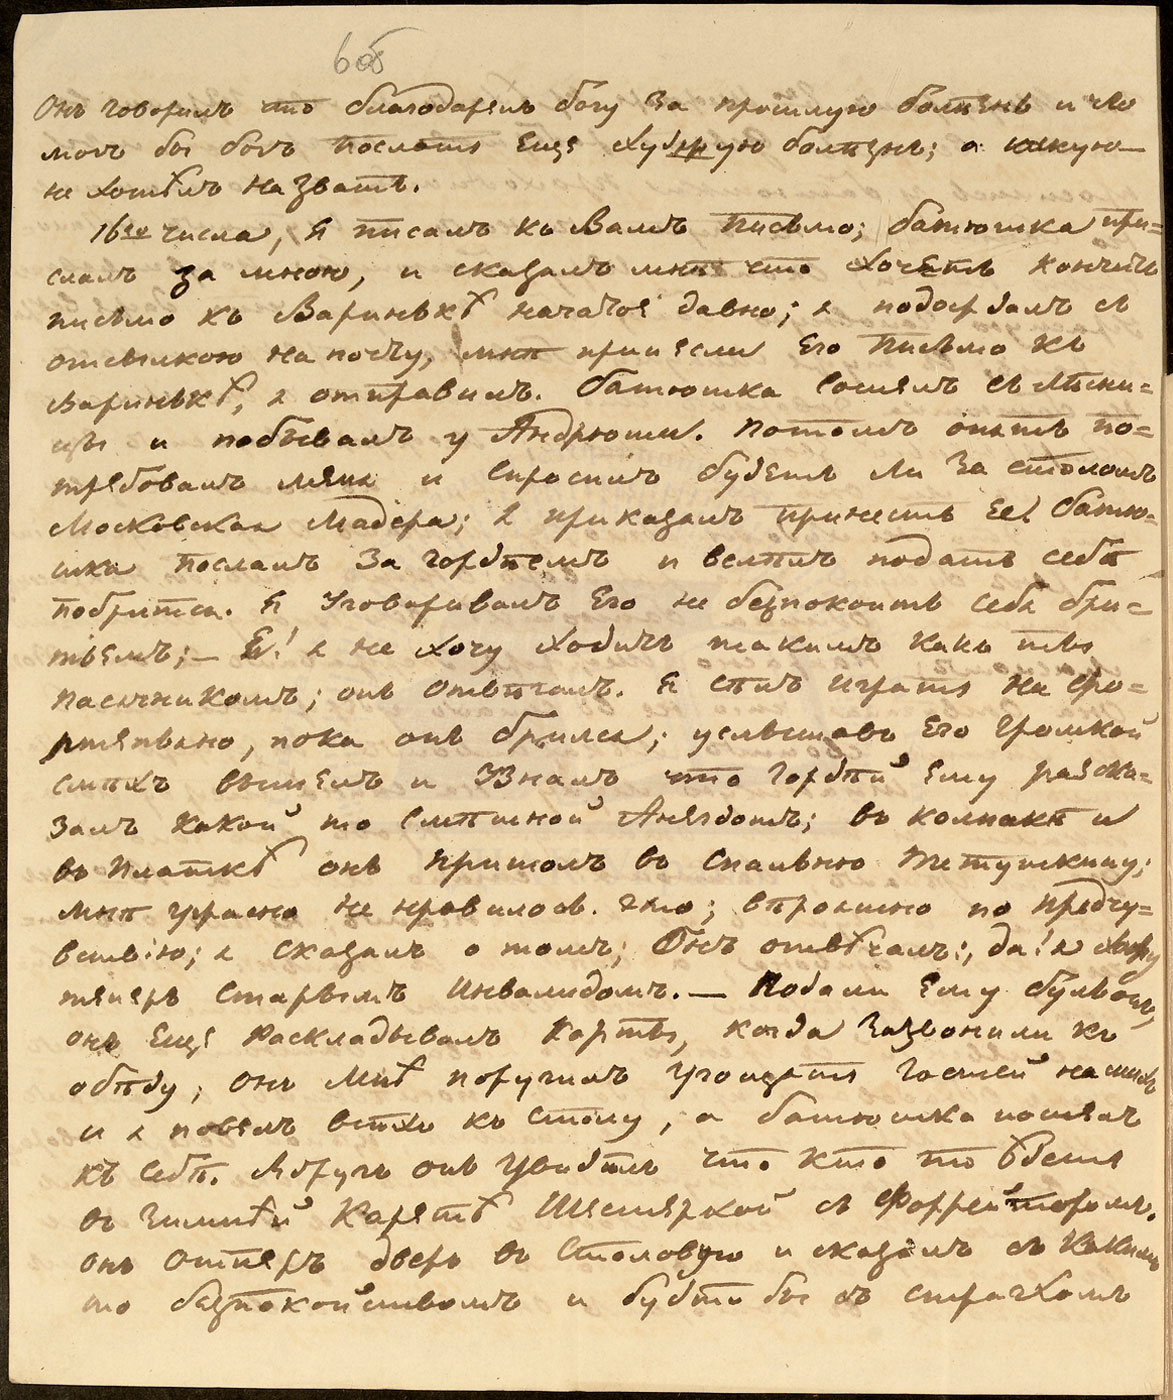 6 об
Онъ говорилъ что благодарилъ богу за прошлую болѣзнь и что
могъ бы богъ послать еще худшую болѣзнь; а какую
не хотѣлъ назвать.
16го числа, я писалъ къ Вамъ письмо; батюшка при=
слалъ за мною, и сказалъ мнѣ что хочетъ кончить
письмо къ Варинькѣ начатое давно; я подождалъ съ
отсылкою на почту, мнѣ принесли его письмо къ
Варинькѣ, я отправилъ. батюшка сошелъ съ лѣсни=
цы и побывалъ у Андрюши. Потомъ опять по=
требовалъ меня и спросилъ будетъ ли за столомъ
Московская мадера; я приказалъ принесть ее! батю=
шка послалъ за гордѣемъ и велѣлъ подать себѣ
побритса. Я уговаривалъ его не безпокоить себя бри=
тьемъ; — Е! я не хочу ходить такимъ какъ ты
пасѣчникомъ; онъ отвѣчалъ. Я сѣлъ играть на фо=
ртепьяно, пока онъ брился; услышавъ его громкой
смѣхъ вышелъ и узналъ что Гордѣй ему раска=
залъ какой то смѣшной Анекдотъ; въ колпакѣ и
въ платкѣ онъ пришолъ въ спальню тетушкину;
мнѣ ужасно не нравилось это; впрочемъ по предчу=
вствію; я сказалъ о томъ; Онъ отвѣчалъ:, да! я хожу
теперь старымъ инвалидомъ. — Подали ему бульонъ,
онъ еще раскладывалъ карты, когда зазвонили къ
обѣду; онъ мнѣ поручилъ угощать гостей нашихъ
и я повелъ всѣхъ къ столу, а батюшка пошелъ
къ себѣ. Вдругъ онъ увидѣлъ что кто то ѣдетъ
въ зимнѣй каретѣ шестеркой съ форрейторомъ.
онъ отперъ дверь въ столовую и сказалъ съ какимъ
то безпокойствомъ и будто бы съ страхомъ